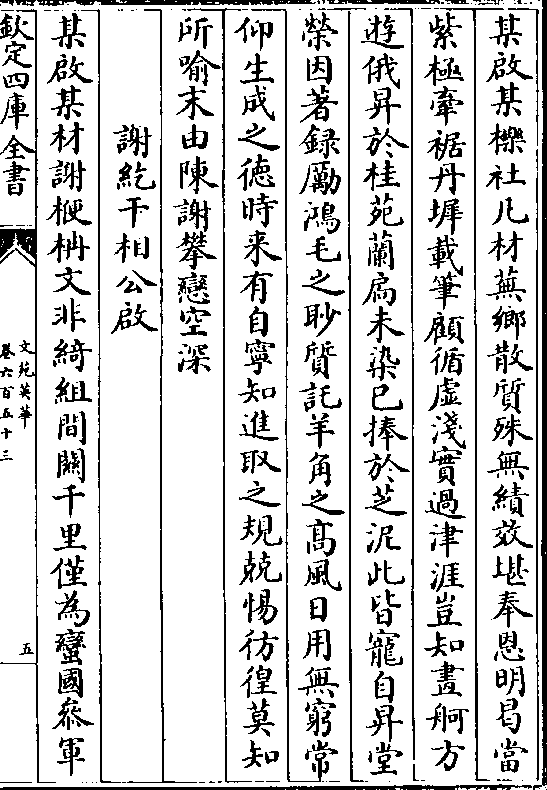 某啟某櫟社凡材蕪鄉散質殊無績效堪奉恩明曷當
紫極牽裾丹墀載筆顧循虛淺實過津涯豈知畫舸方
遊俄昇於桂苑蘭扃未染已捧於芝泥此皆寵自昇堂
榮因著録勵鴻毛之眇質託羊角之高風日用無窮常
仰生成之德時来有自寧知進取之規兢惕彷徨莫知
所喻末由陳謝攀戀空深
謝紇干相公啟
某啟某材謝楩柟文非綺組間關千里僅為蠻國叅軍
欽定四庫全書
文苑英華
卷六百五十三
五